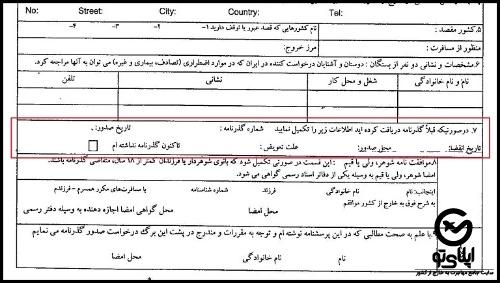 No: Street: City: Country: Tel:
۵.کشور مقصد : نام کشورهایی که قصد عبور یا توقف دارید ۱- ۲- ۳- ۴-
منظور از مسافرت : مرز خروج:
۶.مشخصات و نشانی دو نفر از بستگان : دوستان و آشنایان درخواست کننده در ایران که در موارد اضطراری (تصادف، بیماری و غیره) می توان به آنها مراجعه کرد.
نام و نام خانوادگی شغل و محل کار نشانی تلفن
۷. درصورتیکه قبلاً گذرنامه دریافت کرده اید اطلاعات زیر را تکمیل نمایید شماره گذرنامه : تاریخ صدور: .
تاریخ انقضا: محل صدور: علت تعویض : تاکنون گذرنامه نداشته ام
۸.موافقت نامه شوهر، ولی یا قیم : این قسمت در صورتی تکمیل شود که بانوی شوهردار یا فرزندان کمتر از ۱۸ سال، متقاضی گذرنامه باشند.
امضا شوهر، ولی یا قیم به وسیله یکی از دفاتر اسناد رسمی گواهی می شود.
اینجانب: نام نام خانوادگی فرزند شماره شناسنامه با مسافرت‌های مکرر همسرم - فرزندم
به شرح فوق به خارج از کشور موافقم محل امضا محل گواهی امضا اجازه دهنده به وسیله دفتر رسمی
۹.با علم به صحت مطالبی که در این پرسشنامه نوشته ام و توجه به مقررات و مندرج در پشت این برگ درخواست صدور گذرنامه می نمایم
نام نام خانوادگی محل امضا
اپلای تو
سایت جامع مهاجرت به خارج از کشور